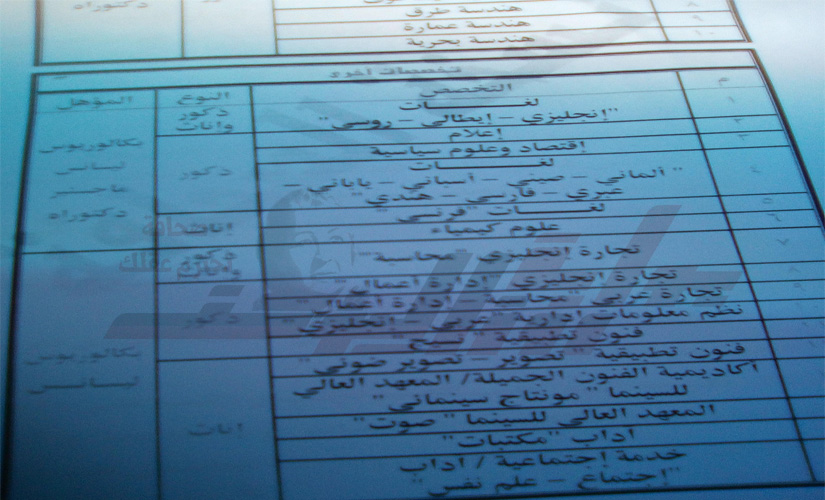 دكتوراه
هندسة طرق
٨
هندسة عمارة
٩
هندسة بحرية
١٠
تخصصات أخرى
م
التخصص
النوع
المؤهل
١
لغـــــات
"إنجليزي – إيطالي – روسي"
ذكور
وإناث
٢
إعلام
٣
إقتصاد وعلوم سياسية
ذكور
بكالوريوس
ليسانس
ماجستير
دكتوراه
٤
لغـــــات
" ألماني – صيني – أسباني – ياباني –
عبري – فارسي – هندي"
٥
لغـــــات "فرنسي"
إناث
٦
علوم كيمياء
٧
تجارة إنجليزي "محاسبة"
ذكور
وإناث
٨
تجارة إنجليزي "إدارة أعمال"
ذكور
تجارة عربي "محاسبة – إدارة أعمال"
نظم معلومات إدارية "عربي – إنجليزي"
فنون تطبيقية "نسيج"
بكالوريوس
ليسانس
فنون تطبيقية "تصوير – تصوير ضوئي"
إناث
أكاديمية الفنون الجميلة/ المعهد العالي
للسينما "مونتاج سينمائي"
المعهد العالي للسينما "صوت"
آداب "مكتبات"
خدمة إجتماعية / آداب
"إجتماع – علم نفس"